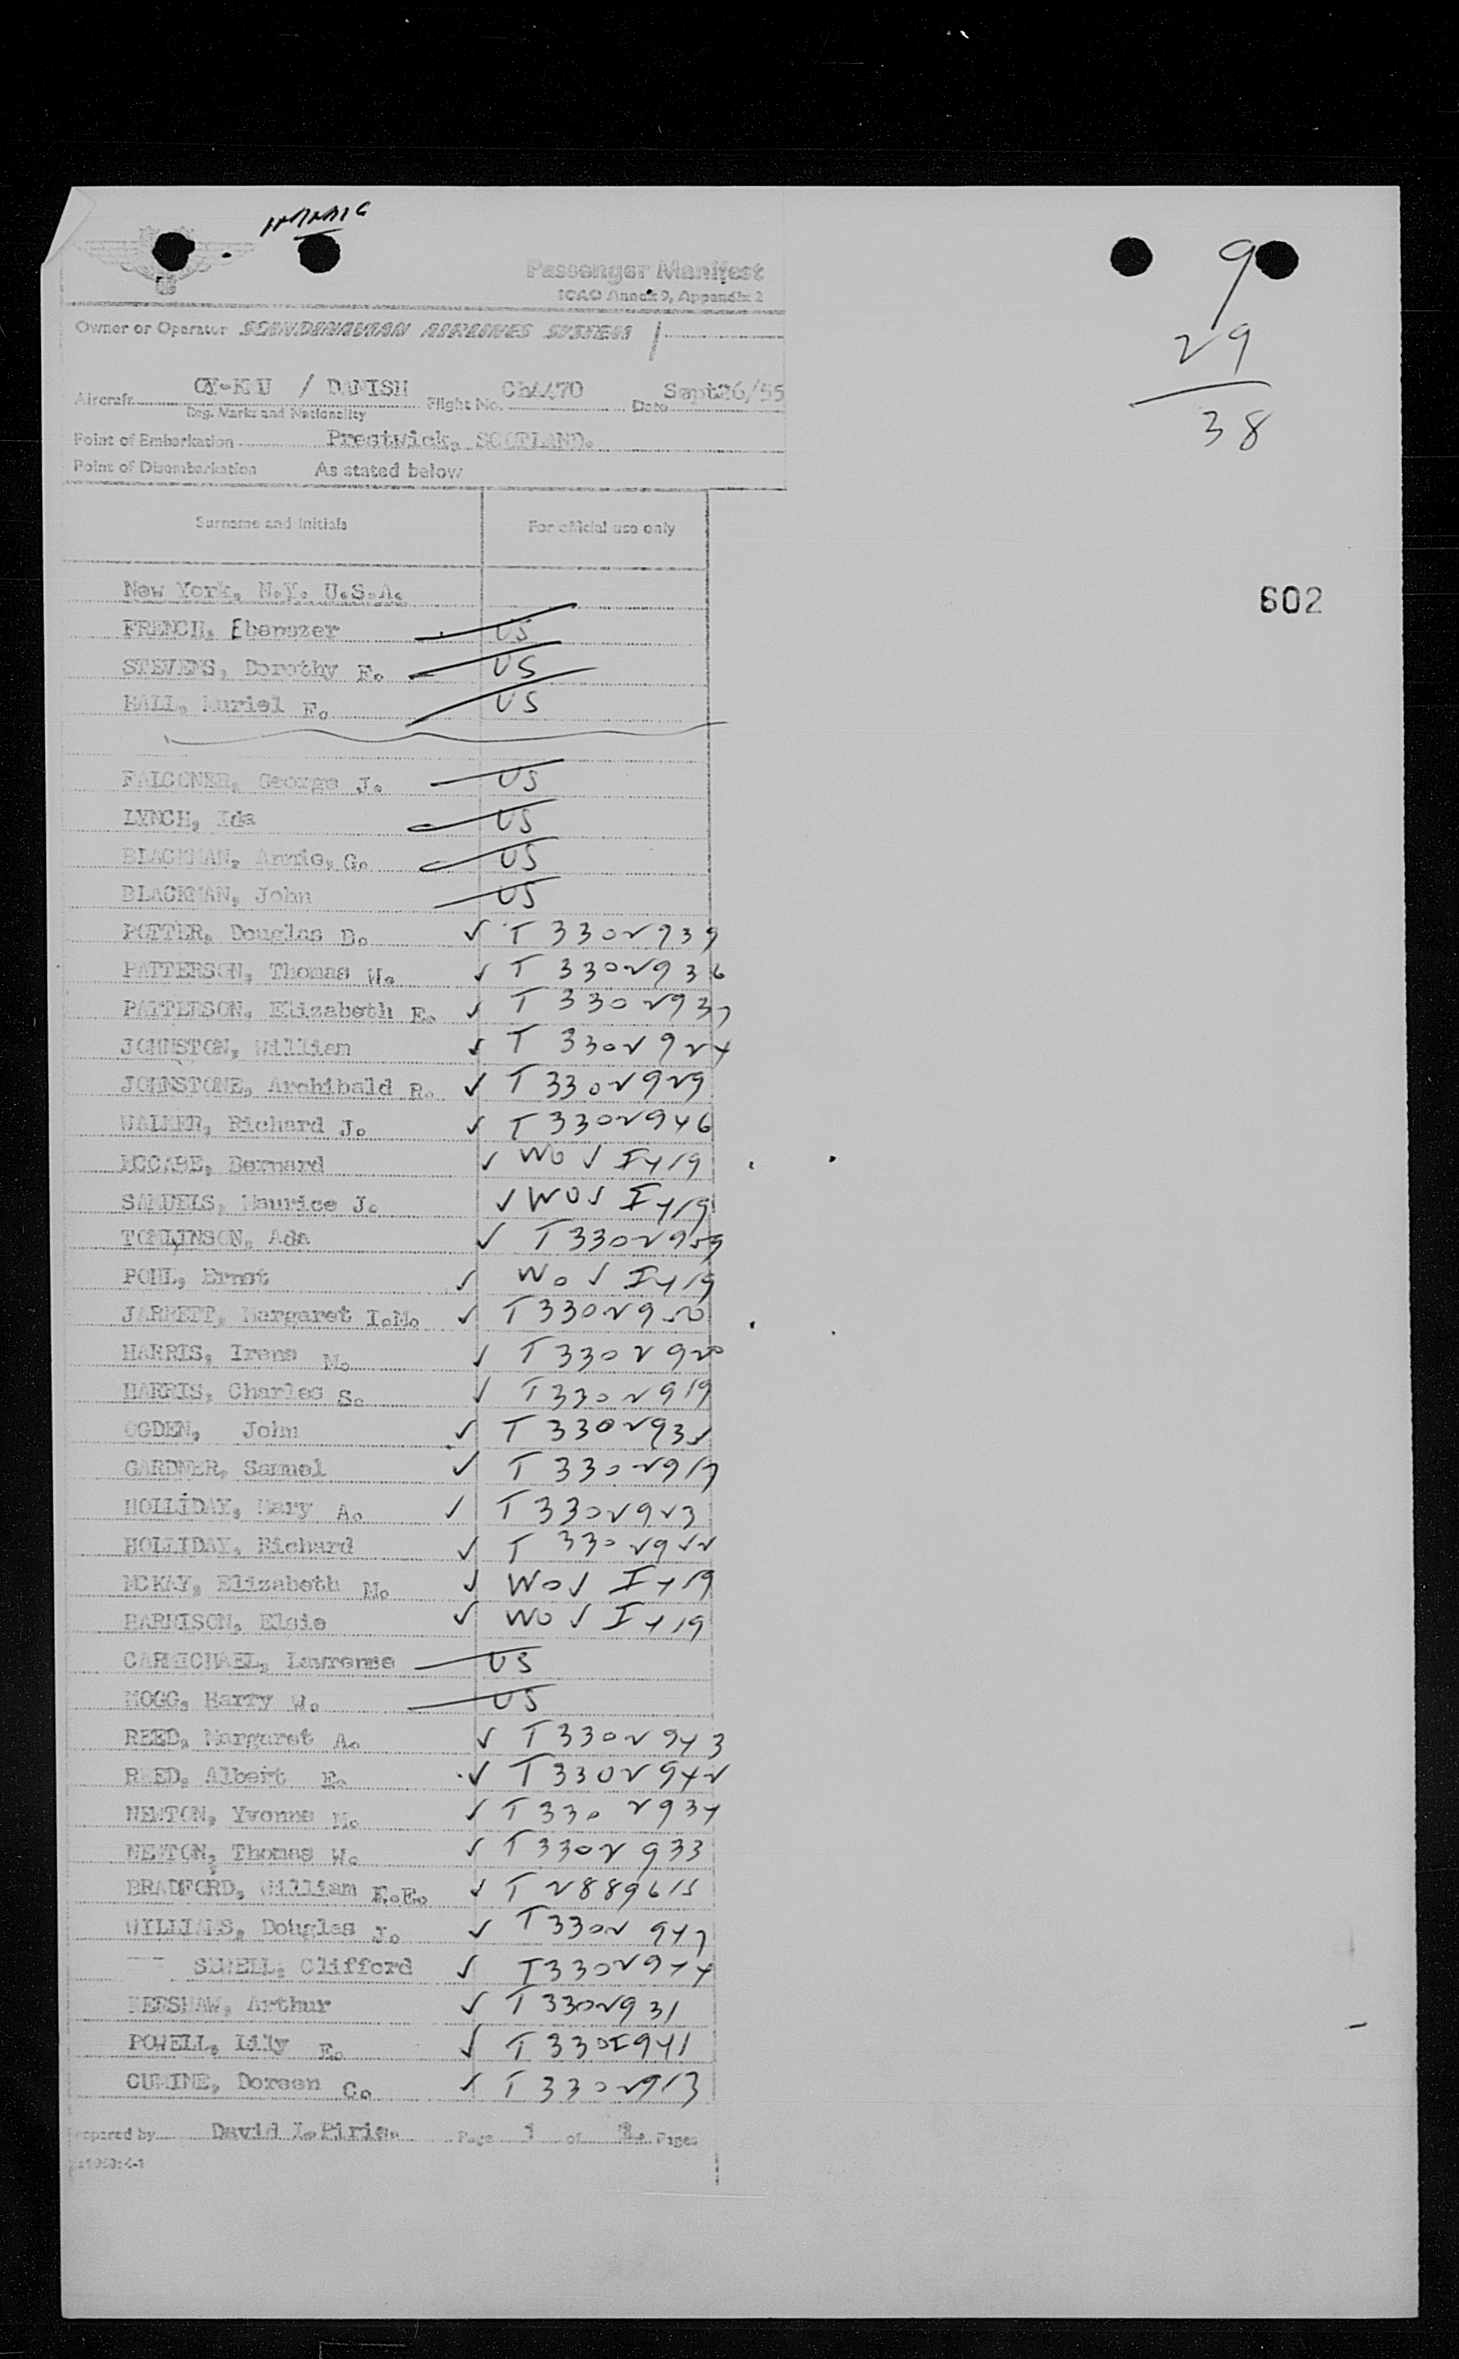 9
29
38
Passenger Manifest
ICAO Annex 9, Appendix 2
Owner or Operator SCANDINAVIAN AIRLINES SYSTEM
Aircraft OY-KMU / DANISH Flight No. Ch4470 Date Sept26/55
Reg. Marks and Nationality
Point of Embarkation Prestwick, SCOTLAND.
Point of Disembarkation As stated below
Surname and Initials For official use only
602
New York, N.Y. U.S.A.
FRENCH, Ebenezer US
STEVENS, Dorothy F. US
HALL, Muriel F. US
FALCONER, George J. US
LYNCH, Ida US
BLACKMAN, Annie, G. US
BLACKMAN, John US
POTTER, Douglas D. ✓ T 3302939
PATTERSON, Thomas W. ✓ T 3302936
PATTERSON, Elizabeth E. ✓ T 3302937
JOHNSTON, William ✓ T 3302924
JOHNSTONE, Archibald R. ✓ T 3302929
WALKER, Richard J. ✓ T 3302946
MCCABE, Bernard ✓ WO ✓ I419
SAMUELS, Maurice J. ✓ WO ✓ I419
TOMLINSON, Ada ✓ T 3302959
POHL, Ernst ✓ WO ✓ I419
JARRETT, Margaret I.M. ✓ T 3302950
HARRIS, Irene M. ✓ T 3302920
HARRIS, Charles S. ✓ T 3302919
OGDEN, John ✓ T 3302935
GARDNER, Samuel ✓ T 3302917
HOLLIDAY, Mary A. ✓ T 3302923
HOLLIDAY, Richard ✓ T
MCKAY, Elizabeth M. ✓ WO ✓ I419
HARRISON, Elsie ✓ WO ✓ I419
CARMICHAEL, Lawrense US
MOGG, Harry W. US
REED, Margaret A. ✓ T 3302943
REED, Albert E. ✓ T 3302942
NEWTON, Yvonne M. ✓ T 3302934
NEWTON, Thomas W. ✓ T 3302933
BRADFORD, William E.E. ✓ T 2889615
WILLIAMS, Douglas J. ✓ T 3302947
SEWELL, Clifford ✓ T 3302944
KERSHAW, Arthur ✓ T 3302931
POWELL, Lily E. ✓ T 3302941
CUMINE, Doreen C. ✓ T 3302913
Prepared by David L. Pirie. Page 1 of 2. Pages